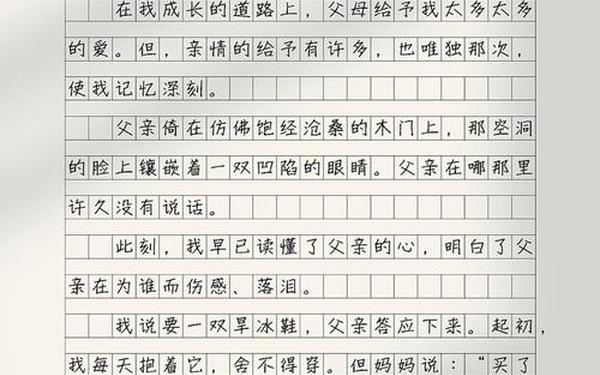 在我成长的道路上，父母给予我太多太多
的爱。但，亲情的给予有许多，也唯独那次，
使我记忆深刻。
父亲倚在仿佛饱经沧桑的木门上，那空洞
的脸上镶嵌着一双凹陷的眼睛。父亲在哪那里
许久没有说话。
此刻，我早已读懂了父亲的心，明白了父
亲在为谁而伤感、落泪。
我说要一双旱冰鞋，父亲答应下来。起初，
我每天抱着它，舍不得穿。但妈妈说：“买了